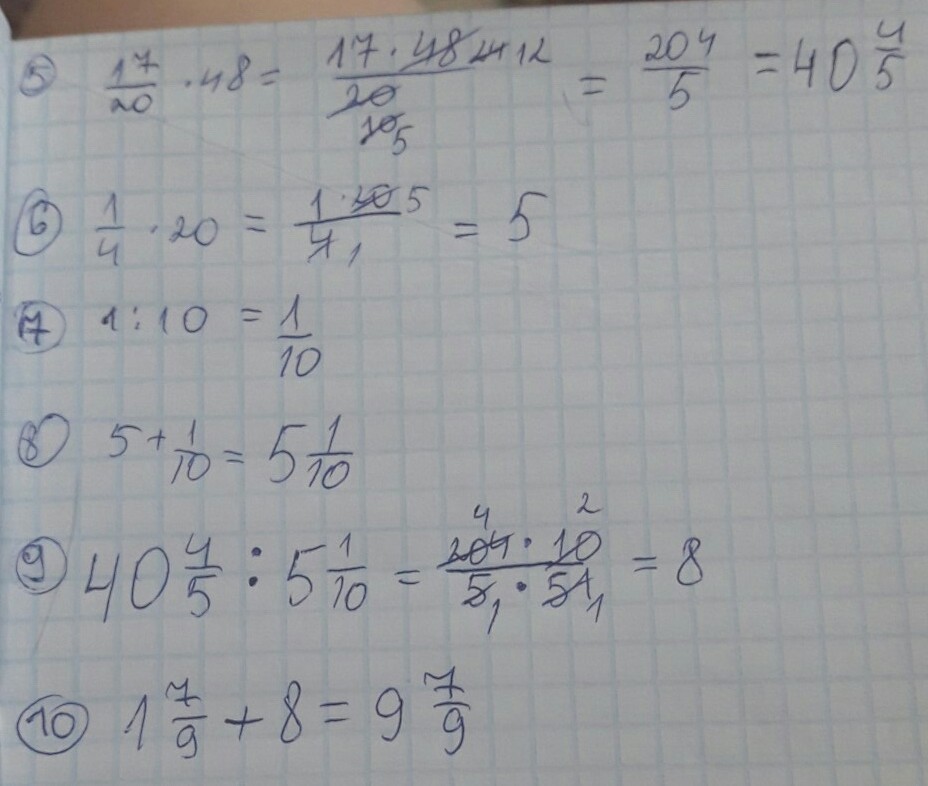 ⑤ 17/20 · 48 = 17 · 48 24 12 / 20 10 5 = 204/5 = 40 4/5
⑥ 1/4 · 20 = 1 · 20 5 / 4 1 = 5
⑦ 1 : 10 = 1/10
⑧ 5 + 1/10 = 5 1/10
⑨ 40 4/5 : 5 1/10 = 204 4 · 10 2 / 5 1 · 51 1 = 8
⑩ 1 7/9 + 8 = 9 7/9